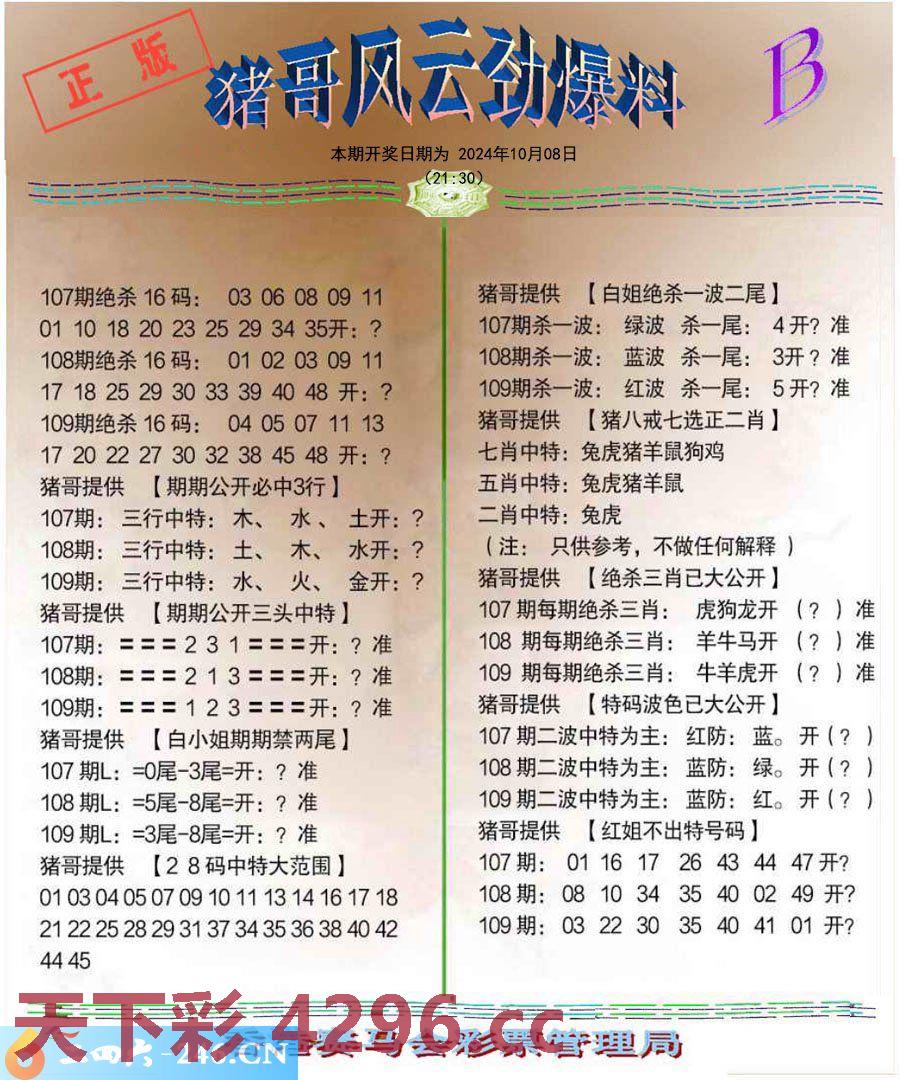 正版
猪哥风云劲爆料
B
本期开奖日期为 2024年10月08日
(21:30)
107期绝杀16码： 03 06 08 09 11
01 10 18 20 23 25 29 34 35开：?
108期绝杀16码： 01 02 03 09 11
17 18 25 29 30 33 39 40 48 开：?
109期绝杀16码： 04 05 07 11 13
17 20 22 27 30 32 38 45 48 开：?
猪哥提供 【期期公开必中3行】
107期： 三行中特： 木、 水 、 土开：?
108期： 三行中特： 土、 木、 水开：?
109期： 三行中特： 水、 火、 金开：?
猪哥提供 【期期公开三头中特】
107期：===2 3 1===开：? 准
108期：===2 1 3===开：? 准
109期：===1 2 3===开：? 准
猪哥提供 【白小姐期期禁两尾】
107 期L：=0尾-3尾=开：? 准
108 期L：=5尾-8尾=开：? 准
109 期L：=3尾-8尾=开：? 准
猪哥提供 【2 8 码中特大范围】
01 03 04 05 07 09 10 11 13 14 16 17 18
21 22 25 28 29 31 37 34 35 36 38 40 42
44 45
猪哥提供 【白姐绝杀一波二尾】
107期杀一波： 绿波 杀一尾： 4 开? 准
108期杀一波： 蓝波 杀一尾： 3开 ? 准
109期杀一波： 红波 杀一尾： 5 开? 准
猪哥提供 【猪八戒七选正二肖】
七肖中特：兔虎猪羊鼠狗鸡
五肖中特：兔虎猪羊鼠
二肖中特：兔虎
（注： 只供参考，不做任何解释 ）
猪哥提供 【绝杀三肖已大公开】
107 期每期绝杀三肖： 虎狗龙开 （? ）准
108 期每期绝杀三肖： 羊牛马开 （? ）准
109 期每期绝杀三肖： 牛羊虎开 （? ）准
猪哥提供 【特码波色已大公开】
107 期二波中特为主： 红防： 蓝。 开（? ）
108 期二波中特为主： 蓝防： 绿。 开（? ）
109 期二波中特为主： 蓝防： 红。 开（? ）
猪哥提供 【红姐不出特号码】
107 期： 01 16 17 26 43 44 47 开?
108 期： 08 10 34 35 40 02 49 开?
109 期： 03 22 30 35 40 41 01 开?
天下彩 4296.cc
二四六-246.CN
马会彩票管理局